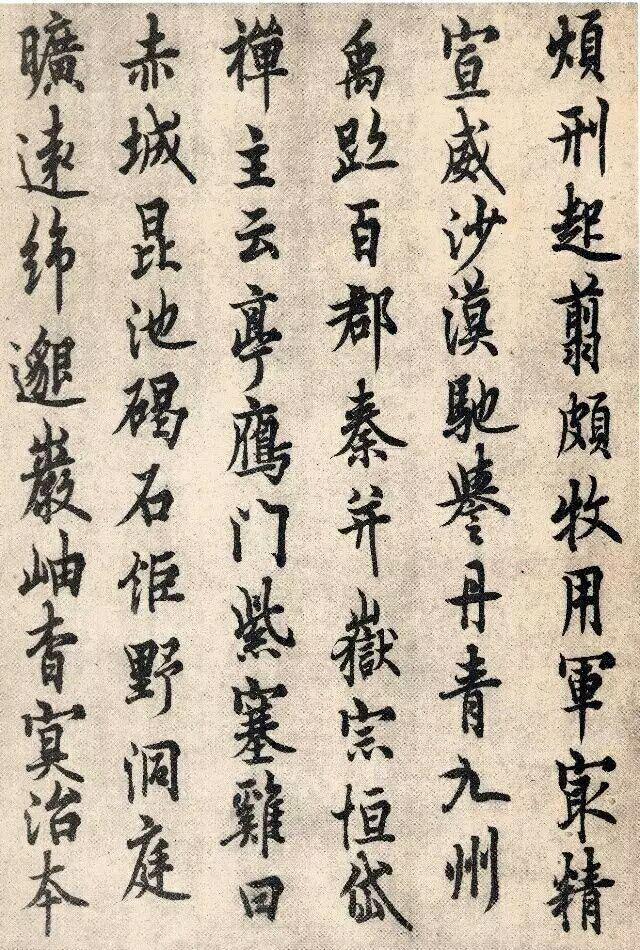 煩刑起翦頗牧用軍㝡精
宣威沙漠馳譽丹青九州
禹跡百郡秦并嶽宗恒岱
禪主云亭鴈門紫塞雞田
赤城昆池碣石鉅野洞庭
曠遠綿邈巖岫杳冥治本